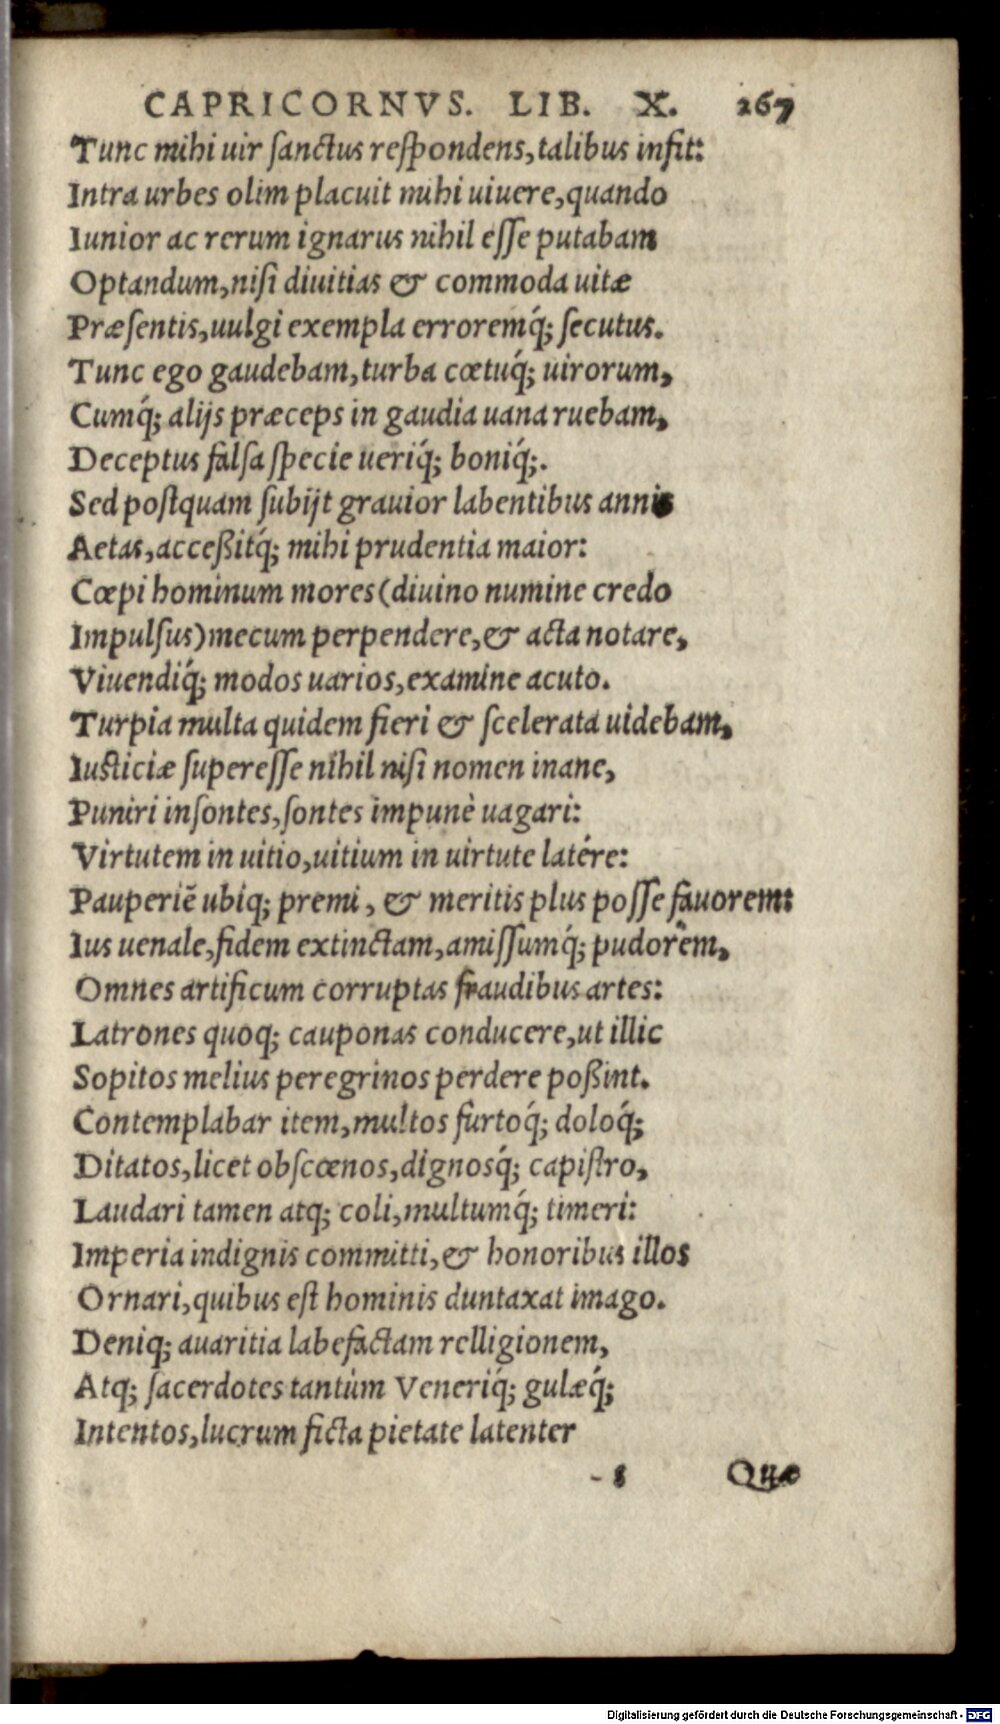 CAPRICORNVS. LIB. X. 267
Tunc mihi uir ſanctus reſpondens, talibus infit:
Intra urbes olim placuit mihi uiuere, quando
Iunior ac rerum ignarus nihil eſſe putabam
Optandum, niſi diuitias & commoda uitæ
Præſentis, uulgi exempla erroremq́; ſecutus.
Tunc ego gaudebam, turba cœtuq́; uirorum,
Cumq́; alijs præceps in gaudia uana ruebam,
Deceptus falſa ſpecie ueriq́; boniq́;.
Sed poſtquam ſubijt grauior labentibus annis
Aetas, acceßitq́; mihi prudentia maior:
Cœpi hominum mores (diuino numine credo
Impulſus) mecum perpendere, & acta notare,
Viuendiq́; modos uarios, examine acuto.
Turpia multa quidem fieri & ſcelerata uidebam,
Iuſticiæ ſupereſſe nihil niſi nomen inane,
Puniri inſontes, ſontes impunè uagari:
Virtutem in uitio, uitium in uirtute latére:
Pauperiē ubiq; premi, & meritis plus poſſe fauorem:
Ius uenale, fidem extinctam, amiſſumq́; pudorem,
Omnes artificum corruptas fraudibus artes:
Latrones quoq; cauponas conducere, ut illic
Sopitos melius peregrinos perdere poßint.
Contemplabar item, multos furtoq́; doloq́;
Ditatos, licet obſcœnos, dignosq́; capiſtro,
Laudari tamen atq; coli, multumq́; timeri:
Imperia indignis committi, & honoribus illos
Ornari, quibus eſt hominis duntaxat imago.
Deniq; auaritia labefactam relligionem,
Atq; ſacerdotes tantùm Veneriq́; gulæq́;
Intentos, lucrum ficta pietate latenter
Quæ
Digitalisierung gefördert durch die Deutsche Forschungsgemeinschaft - DFG